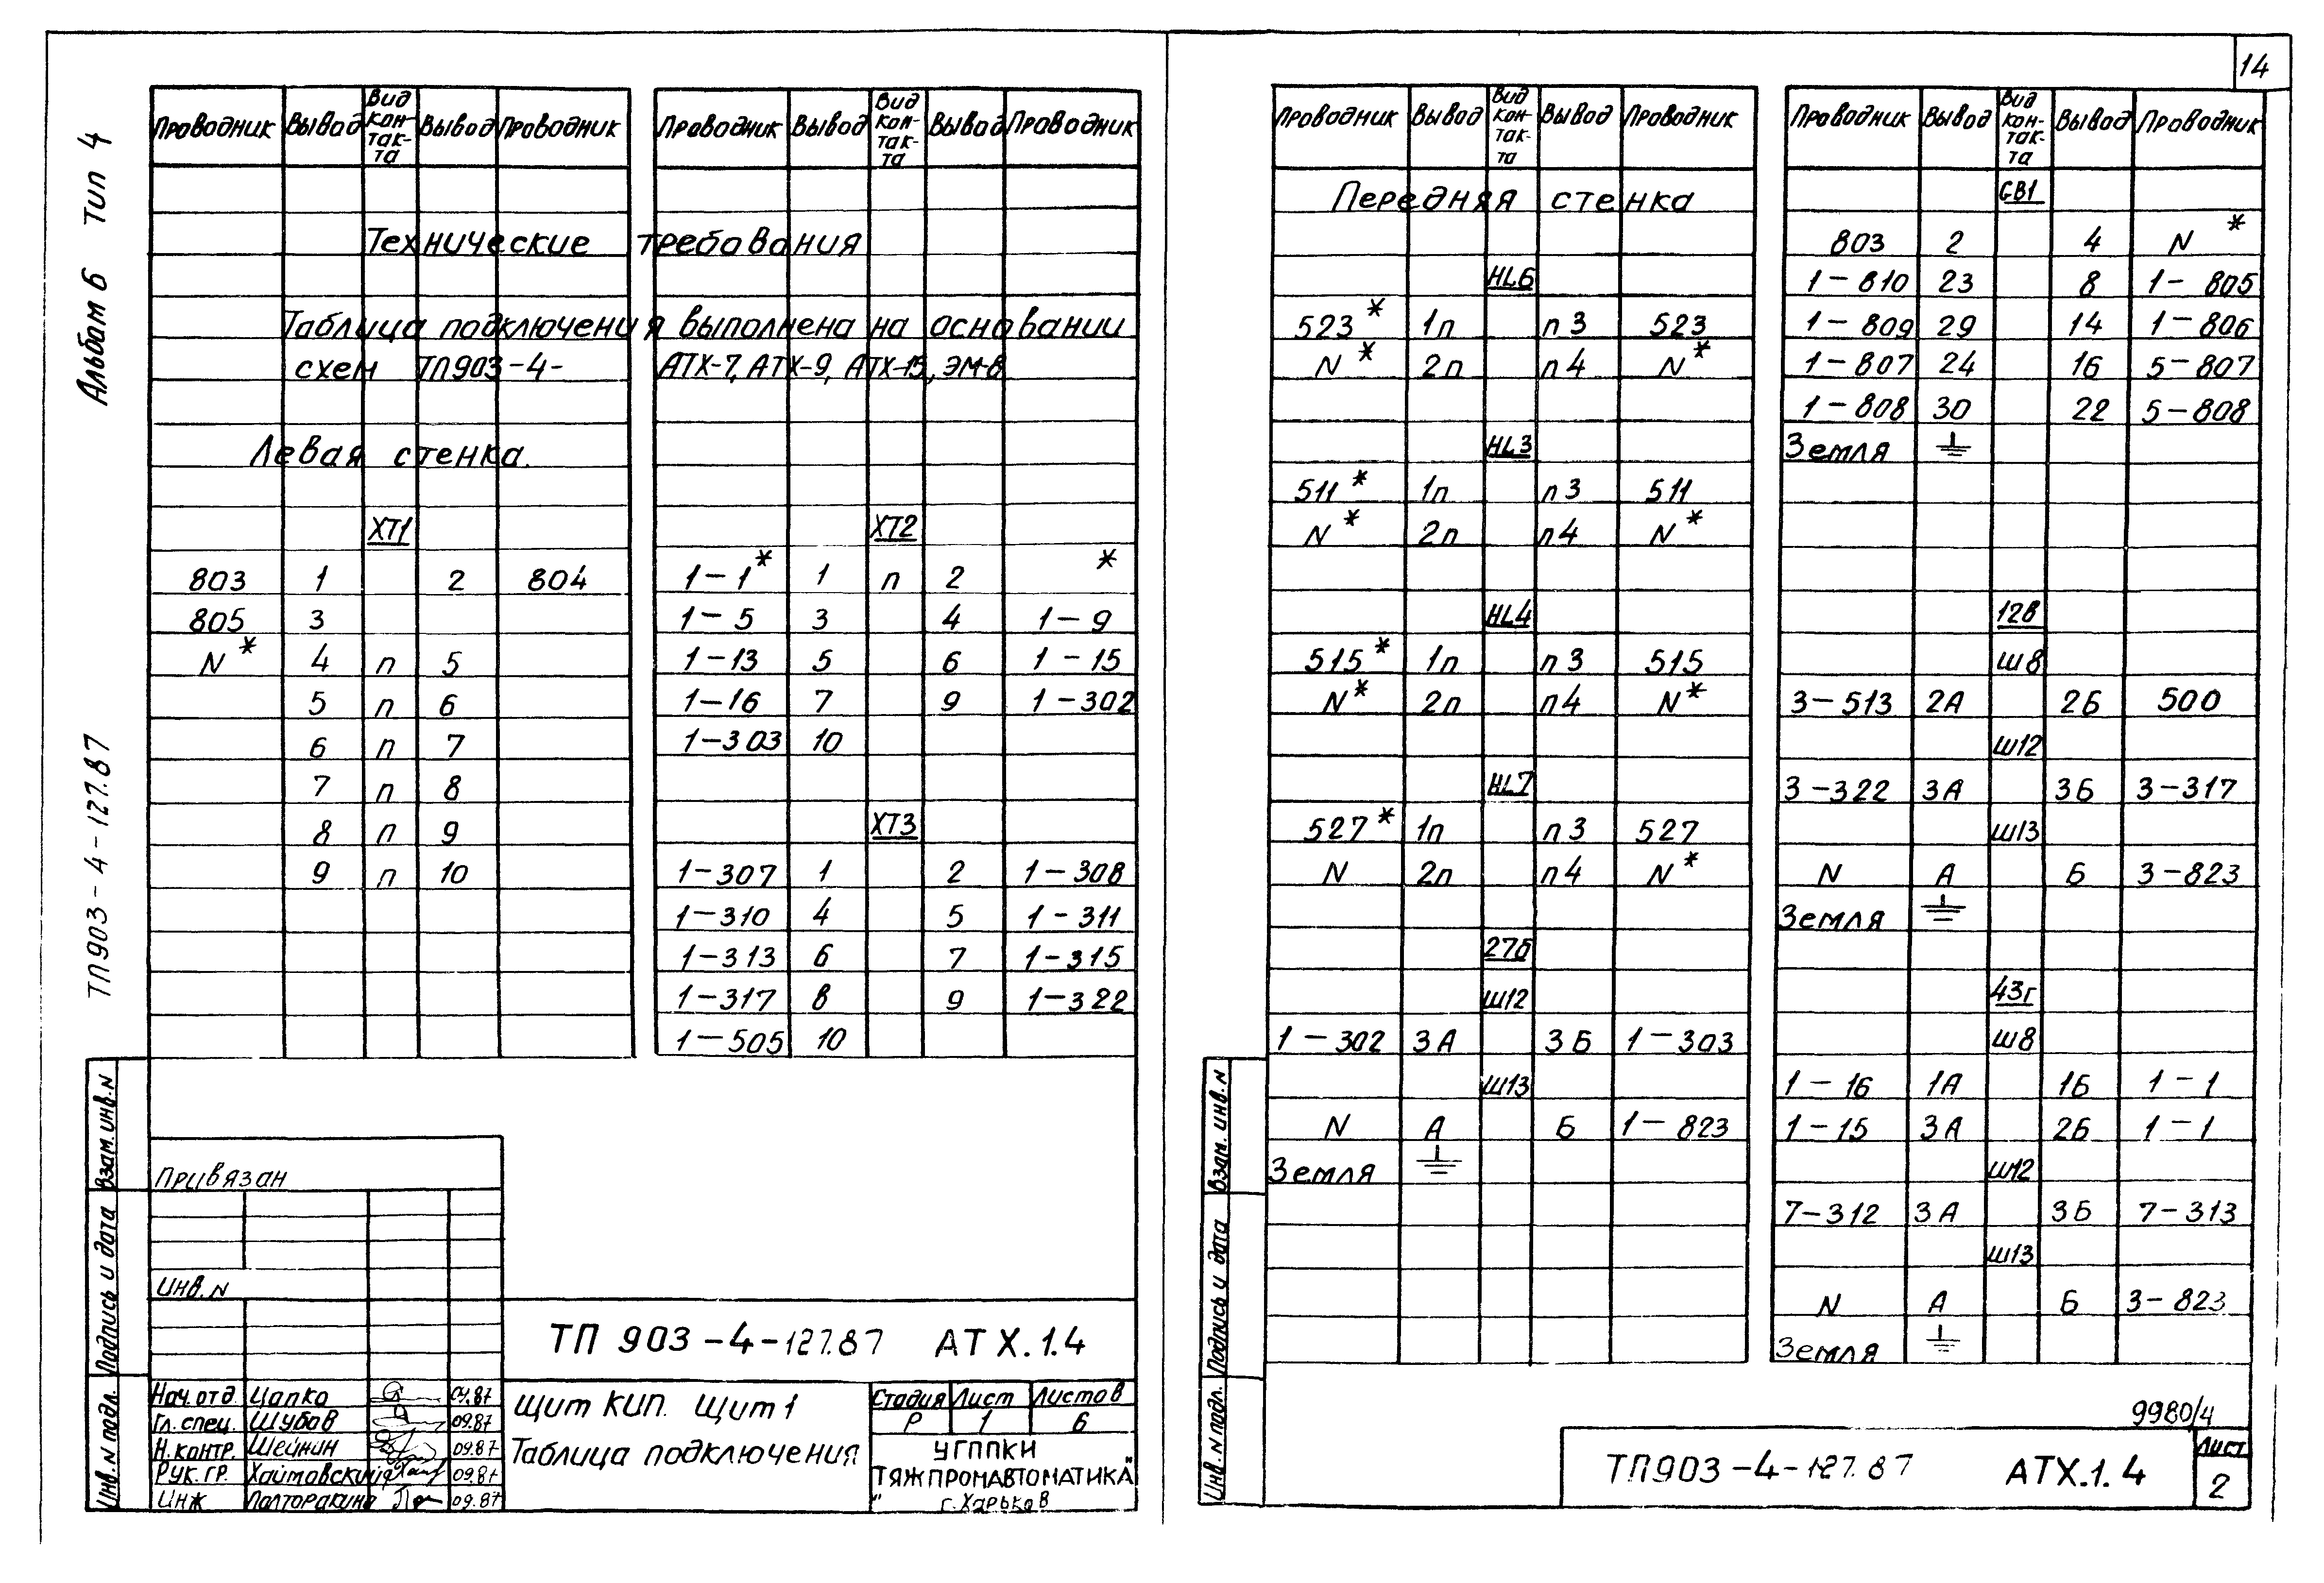 14
Альбом 6 Тип 4
ТП903-4-127.87
Проводник Вывод Вид кон-так-та Вывод Проводник
Технические требования
Таблица подключения выполнена на основании
схем ТП903-4- АТХ-7, АТХ-9, АТХ-15, ЭМ-8
Левая стенка.
ХТ1
803 1 2 804
805 3
N* 4 п 5
5 п 6
6 п 7
7 п 8
8 п 9
9 п 10
Проводник Вывод Вид кон-так-та Вывод Проводник
ХТ2
1-1* 1 п 2 *
1-5 3 4 1-9
1-13 5 6 1-15
1-16 7 9 1-302
1-303 10
ХТ3
1-307 1 2 1-308
1-310 4 5 1-311
1-313 6 7 1-315
1-317 8 9 1-322
1-505 10
Привязан
Инв. N
Взам. инв. N
Подпись и дата
Инв. N подл.
ТП 903-4-127.87 АТХ.1.4
Нач. отд Цапко 09.87
Гл. спец. Шубов 09.87
Н. контр. Шейнин 09.87
Рук. гр. Хайтовский 09.87
Инж Полторакина 09.87
Щит КИП. Щит 1
Таблица подключения
Стадия Лист Листов
Р 1 6
УГППКИ
"ТЯЖПРОМАВТОМАТИКА"
г. Харьков
Проводник Вывод Вид кон-так-та Вывод Проводник
Передняя стенка
HL6
523* 1п п3 523
N* 2п п4 N*
HL3
511* 1п п3 511
N* 2п п4 N*
HL4
515* 1п п3 515
N* 2п п4 N*
HL7
527* 1п п3 527
N 2п п4 N*
27б
Ш12
1-302 3А 3Б 1-303
Ш13
N А Б 1-823
Земля ⏚
Проводник Вывод Вид кон-так-та Вывод Проводник
GB1
803 2 4 N*
1-810 23 8 1-805
1-809 29 14 1-806
1-807 24 16 5-807
1-808 30 22 5-808
Земля ⏚
12в
Ш8
3-513 2А 2Б 500
Ш12
3-322 3А 3Б 3-317
Ш13
N А Б 3-823
Земля ⏚
43г
Ш8
1-16 1А 1Б 1-1
1-15 3А 2Б 1-1
Ш12
7-312 3А 3Б 7-313
Ш13
N А Б 3-823
Земля ⏚
Взам. инв. N
Подпись и дата
Инв. N подл.
9980/4
ТП903-4-127.87 АТХ.1.4
Лист
2